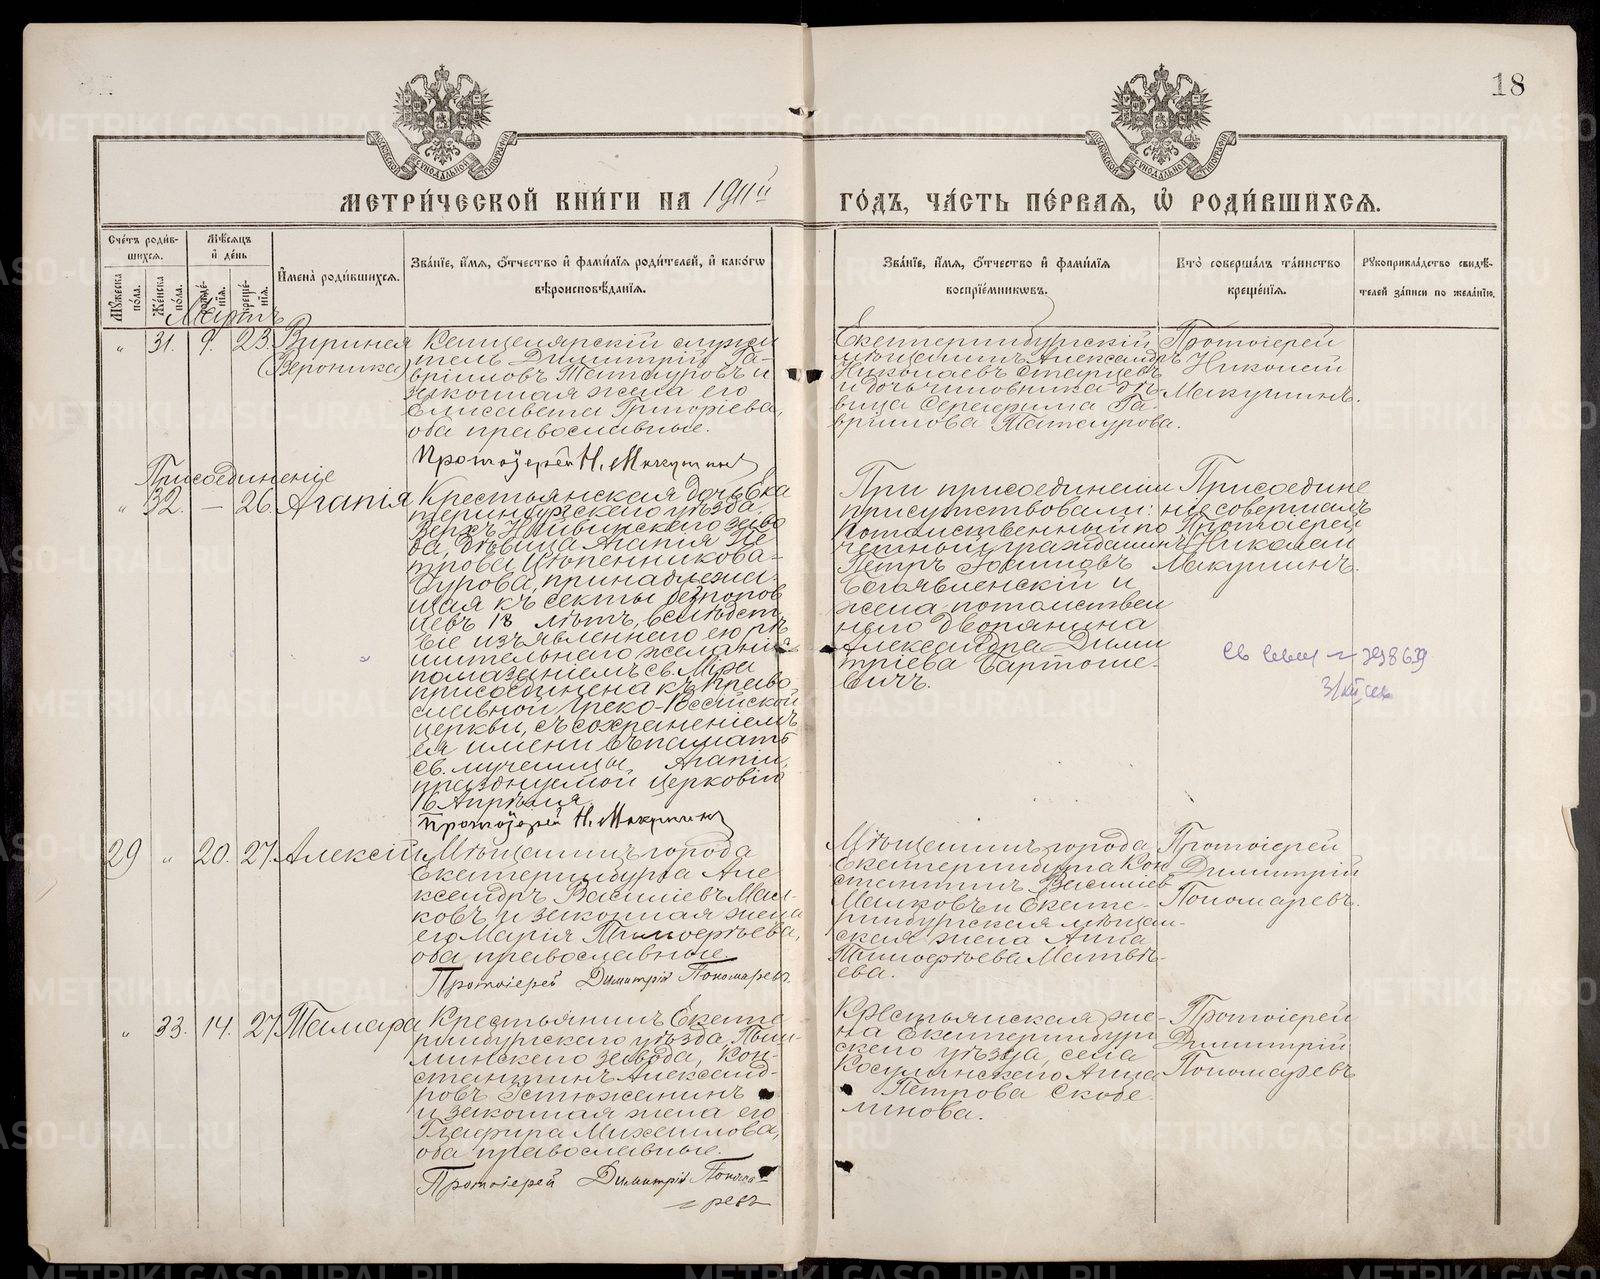 18
МЕТРИ́ЧЕСКОЙ КНИ́ГИ НА 1911й ГО́ДЪ, ЧА́СТЬ ПЕ́РВАЯ, Ѡ҆ РОДИ́ВШИХСѦ.
Сче́тъ роди́в-
шихсѧ.
Мꙋ́жеска по́ла.
Же́нска по́ла.
Мѣ́сѧцъ
и҆ де́нь
рожде́-
нїѧ.
креще́-
нїѧ.
И҆мена̀ роди́вшихсѧ.
Зва́нїе, и҆́мѧ, ѻ҆́тчество и҆ фами́лїѧ роди́телей, и҆ како́гѡ
вѣроисповѣ́данїѧ.
Зва́нїе, и҆́мѧ, ѻ҆́тчество и҆ фами́лїѧ
воспрїе́мникѡвъ.
Кто̀ соверша́лъ та́инство
креще́нїѧ.
Рꙋкоприкла́дство свидѣ́-
телей за́писи по жела́нїю.
Мартъ
„ 31. 9. 23. Виринея
(Вероника)
Канцелярскій служи
тель Димитрій Га-
вріиловъ Топтауровъ и
законная жена его
Елисавета Григоріева,
оба православные.
Протоіерей Н. Макушинъ
Екатеринбургскій
мѣщанинъ Александръ
Николаевъ Старцевъ
и дочь чиновника дѣ-
вица Серафима Га-
вріилова
Протоіерей
Николай
Макушинъ.
Присоединеніе
„ 32. — 26. Агапія
Крестьянская дочь Ека
теринбургскаго уѣзда,
Верхъ Нейвинскаго заво
да, дѣвица Агапія Пе
трова
принадлежа-
щая къ секты безпопов
цевъ 18 лѣтъ, вслѣдст
віе изъявленнаго ею рѣ
шительнаго желанія
помазаніемъ св. Мѵра
присоединена къ Право
славной Греко-Россійской
церкви, съ сохраненіемъ
ея имени въ память
св. мученицы Агапіи,
празднуемой церковію
16 Апрѣля
Протоіерей Н. Макушинъ
При присоединеніи
присутствовали:
потомственный по
четный гражданинъ
Петръ Іоанновъ
Богоявленскій и
жена потомствен
наго дворянина
Александра Дими
тріева Бартоше-
вичъ.
Присоедине
ніе совершалъ
Протоіерей
Николай
Макушинъ.
29 „ 20. 27. Алексій
Мѣщанинъ города
Екатеринбурга Але
ксандръ Василіевъ Мал-
ковъ и законная жена
его Марія Тимоѳеева,
оба православные.
Протоіерей Димитрій Пономаревъ.
Мѣщанинъ города
Екатеринбурга Кон
стантинъ Василіев
Малковъ и Екате-
ринбургская мѣщан-
ская жена Анна
Тимоѳеева Матвѣ-
ева.
Протоіерей
Димитрій
Пономаревъ.
„ 33. 14. 27. Тамара
Крестьянинъ Екате
ринбургскаго уѣзда, Пыш-
минскаго завода, Кон-
стантинъ Александ-
ровъ Устюжанинъ
и законная жена его
Глафира Михаилова,
оба православные.
Протоіерей Димитрій Понома-
ревъ
Крестьянская же-
на Екатеринбург
скаго уѣзда, села
Косулинскаго Анна
Петрова Скобе
линова.
Протоіерей
Димитрій
Пономаревъ